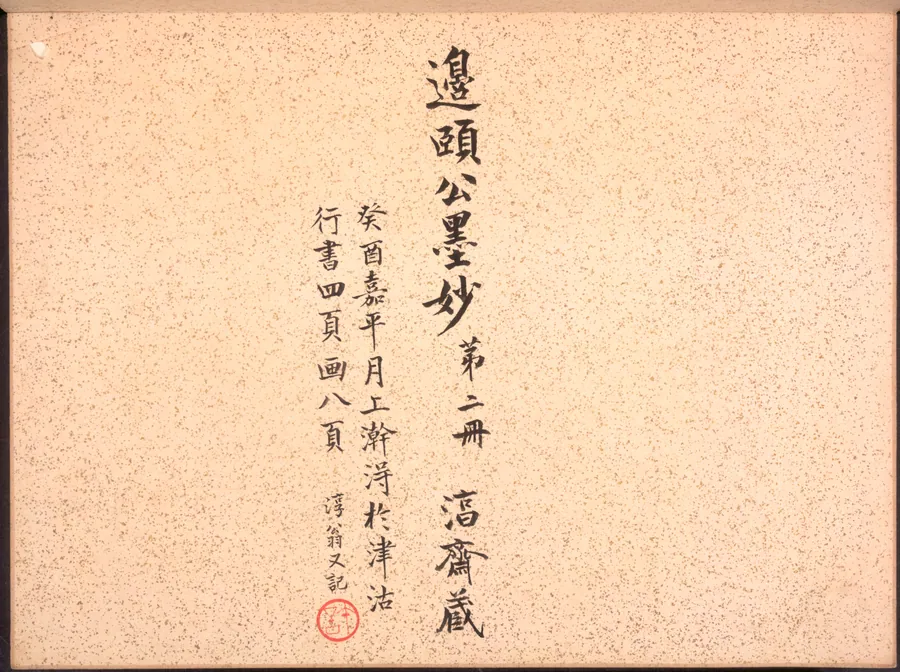 邉頤公墨妙 第二冊 濇齋蔵
癸酉嘉平月上澣淂於津沽
行書四頁画八頁
淳翁又記